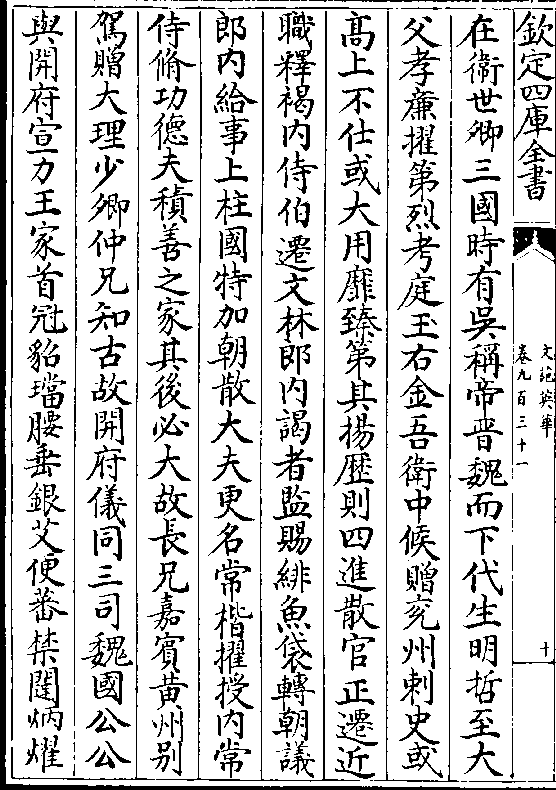 欽定四庫全書
文苑英華
卷九百三十一
十
在衛世卿三國時有吳稱帝晋魏而下代生明哲至大
父孝廉擢第烈考庭玉右金吾衛中候贈兖州刺史或
髙上不仕或大用靡臻第其揚歴則四進散官正遷近
職釋褐内侍伯遷文林郎内謁者監賜緋魚袋轉朝議
郎内給事上柱國特加朝散大夫更名常楷擢授内常
侍脩功德夫積善之家其後必大故長兄嘉賓黄州别
駕贈大理少卿仲兄知古故開府儀同三司魏國公公
與開府宣力王家首冠貂璫腰垂銀艾便蕃禁闥炳燿